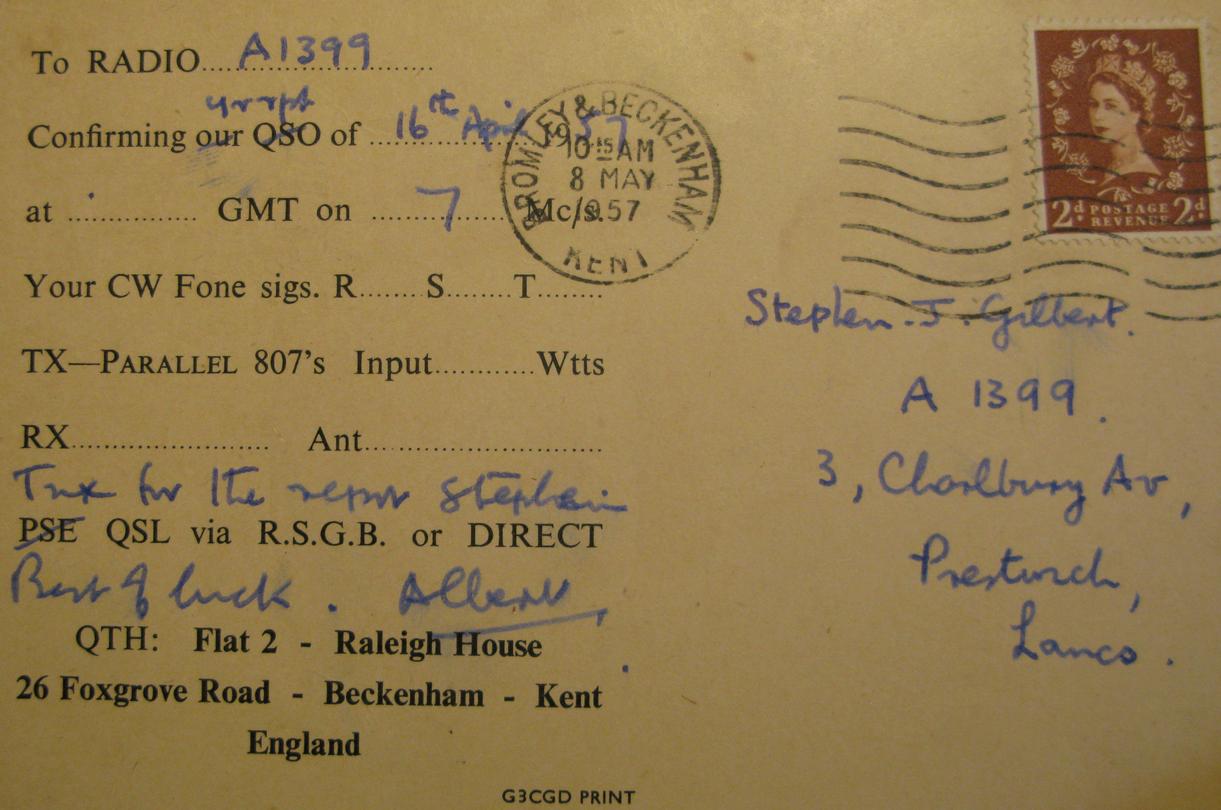 To RADIO A1399
yr rpt
Confirming our QSO of 16th April 1957
at ............... GMT on 7 Mc/s.
Your CW Fone sigs. R....... S....... T........
TX—PARALLEL 807's Input............ Wtts
RX...................... Ant...........................
Tnx for the report Stephen
PSE QSL via R.S.G.B. or DIRECT
Best of luck. Albert,
QTH: Flat 2 - Raleigh House
26 Foxgrove Road - Beckenham - Kent
England
G3CGD PRINT
BROMLEY & BECKENHAM
10 15 AM
8 MAY
1957
KENT
2d POSTAGE 2d
REVENUE
Stephen. J. Gilbert.
A 1399.
3, Charlbury Av,
Prestwich,
Lancs.